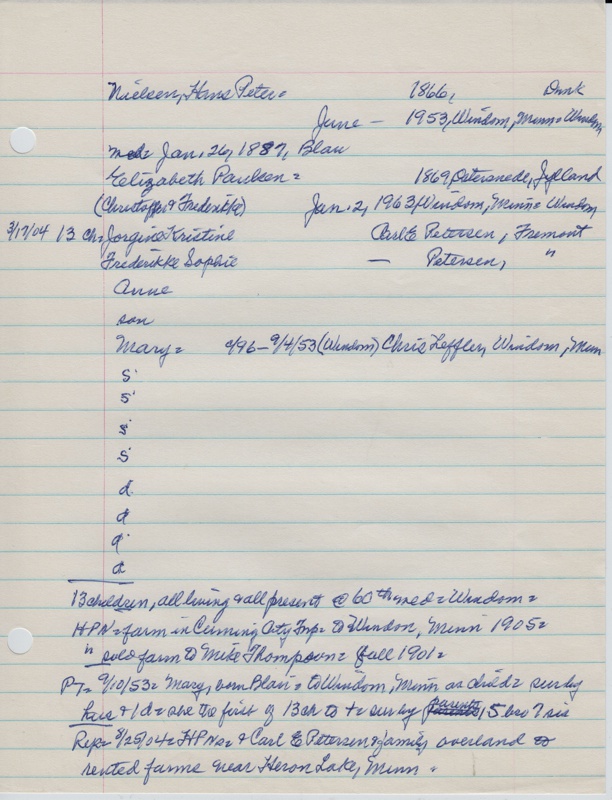 Nielsen, Hans Peter = 1866, Dmk
June — 1953, Windom, Minn = Windom
md = Jan. 26, 1887, Blair
Elizabeth Paulsen = 1869, Jylland
(Christoffer & Frederikke) Jan. 2, 1963, Windom, Minn = Windom
3/17/04 13 Ch = Jorgine Kristine Carl E Petersen, Fremont
Frederikke Sophie — Petersen, "
Anne
son
Mary = 9/96 - 9/4/53 (Windom) Chris Leffler, Windom, Minn
s
s
s
s
d
d
d
d
13 children, all living & all present @ 60th wed = Windom =
HPN = farm in Cuming City Twp = to Windom, Minn 1905 =
" sold farm to Mike Thompson = fall 1901 =
PT = 9/10/53 = Mary, born Blair = to Windom, Minn as child = surv by
hus & 1 d = she the first of 13 ch to + = surv by parents, 5 bro 7 sis
Rep = 3/25/04 = HPN & Carl E Petersen & family overland to
rented farms near Heron Lake, Minn =